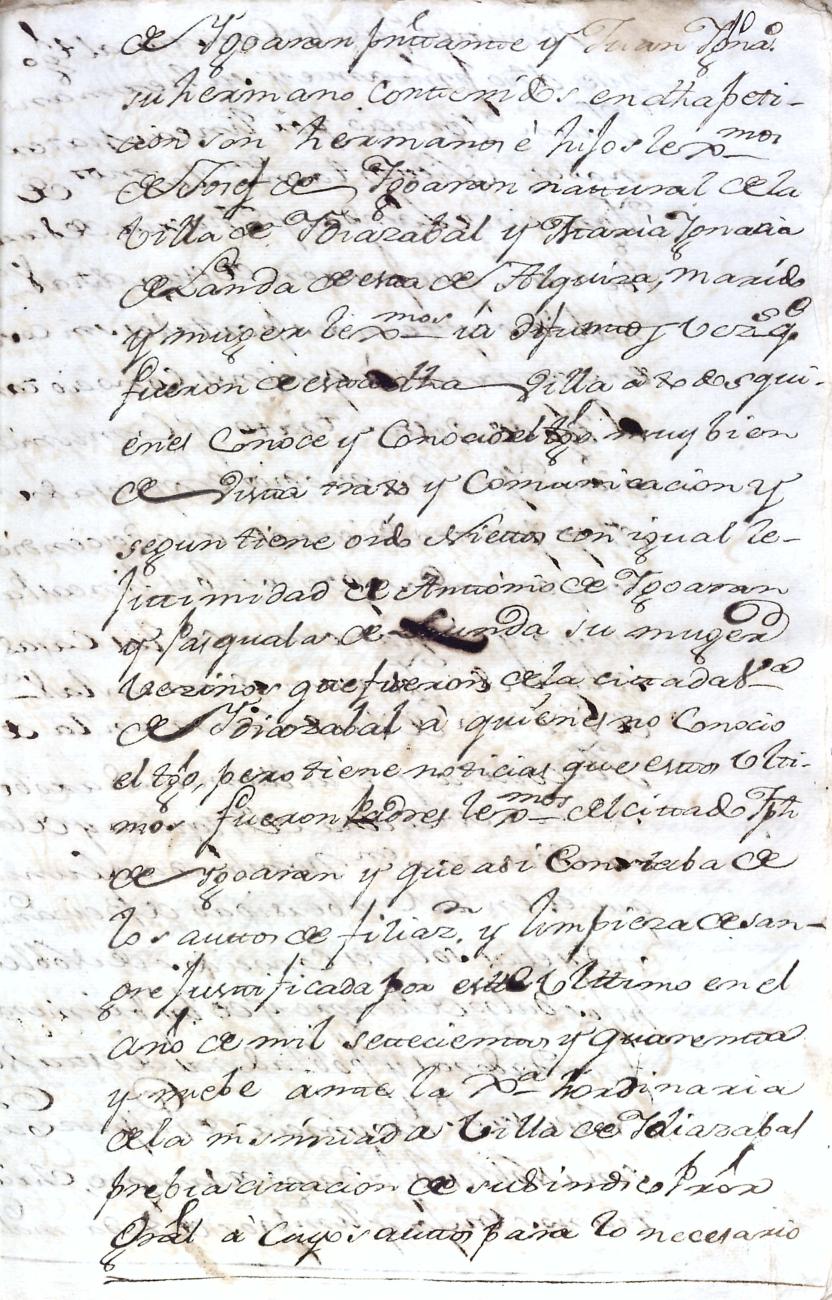 de Ygoaran presentante y Juan Ygnaº
su hermano contenidos en dha peti-
cion son hermanos è hijos lexmos
de Josef de Ygoaran nattural de la
Villa de Ydiazabal y Maria Ygnacia
de Landa de esta de Alquiza, marido
y muger lexmos ià difuntos vezs q̃
fueron de esta dha Villa à todos qui-
enes Conoce y Conocio el tgº muy bien
de Vista trato y Comunicacion y
segun tiene oido Niettos con igual le-
jittimidad de Anttonio de Ygoaran
y Pasquala de Landa su muger
Vezinos que fueron de la cittada Vª
de Ydiazabal à quienes no Conocio
el tgº, pero tiene noticias que estos Ulti-
mos fueron Padres lexmos del cittado Jph
de Ygoaran y que asi Constaba de
los auttos de filiazn y limpieza de san-
gre justtificada por este Ulttimo en el
año de mil settecientos y quarentta
y nuebe ante la Rª hordinaria
de la insinuada Villa de Ydiazabal
prebia cittacion de su Sindico Pror
Gral à cuyos auttos para lo necesario